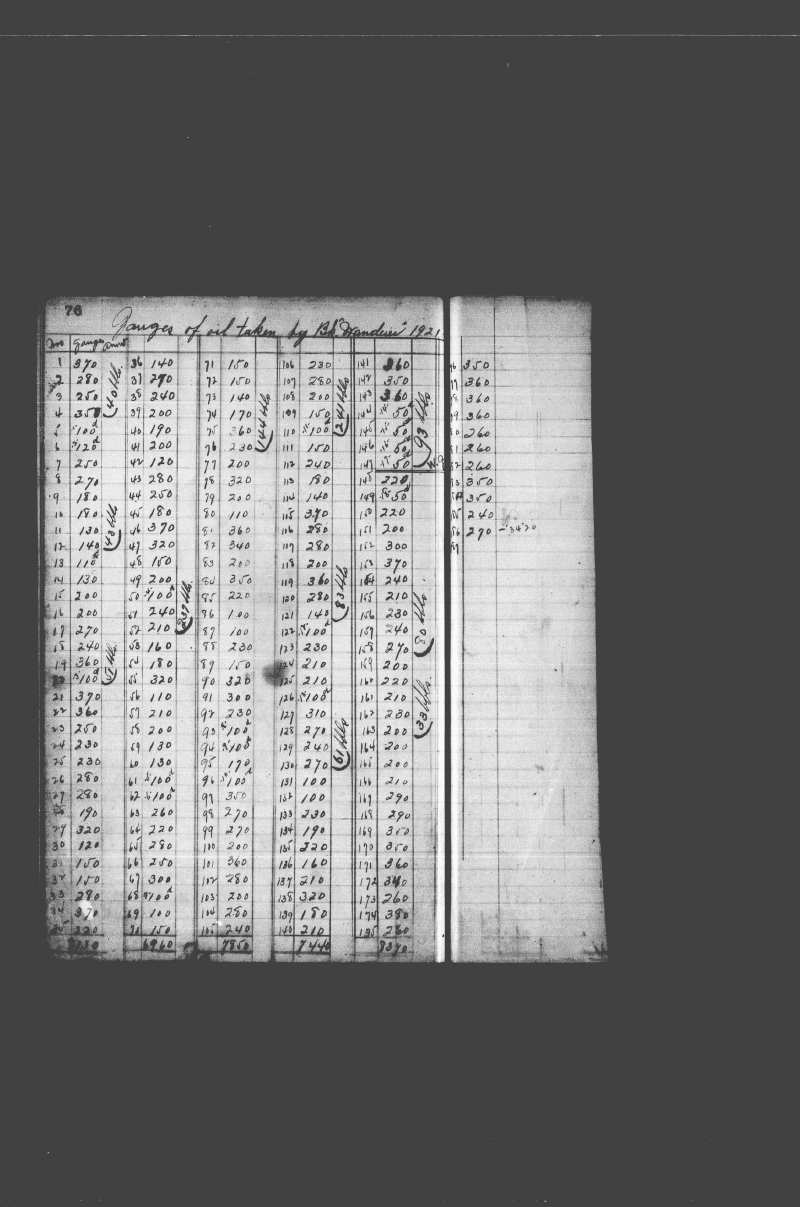 76
Gauges of oil taken by Bk "Wanderer" 1921
Nos Gauges Amnt
1 370 36 140 71 150 106 230 141 360 350
2 280 37 290 72 150 107 280 142 350 360
3 250 38 240 73 140 108 200 143 360 360
4 350 39 200 74 170 109 150 144 50 360
5 100 40 190 75 360 110 100 145 50 260
6 120 41 200 76 230 111 150 146 50 260
7 250 42 120 77 200 112 240 147 50 260
8 270 43 280 78 320 113 180 148 220 350
9 180 44 250 79 200 114 140 149 50 350
10 180 45 180 80 110 115 370 150 220 240
11 130 46 370 81 360 116 280 151 200 270
12 140 47 320 82 340 117 280 152 300
13 110 48 150 83 200 118 200 153 370
14 130 49 200 84 350 119 360 154 240
15 200 50 100 85 220 120 280 155 210
16 200 51 240 86 100 121 140 156 230
17 270 52 210 87 100 122 100 157 240
18 240 53 160 88 230 123 230 158 270
19 360 54 180 89 150 124 210 159 200
20 100 55 320 90 320 125 210 160 220
21 370 56 110 91 300 126 100 161 210
22 360 57 210 92 230 127 310 162 230
23 250 58 200 93 100 128 270 163 200
24 230 59 130 94 100 129 240 164 200
25 230 60 130 95 170 130 270 165 200
26 280 61 100 96 100 131 100 166 210
27 280 62 100 97 350 132 100 167 290
190 63 260 98 270 133 230 168 290
29 320 64 220 99 270 134 190 169 350
30 120 65 280 100 200 135 220 170 350
31 150 66 250 101 360 136 160 171 360
32 150 67 300 102 280 137 210 172 340
33 280 68 100 103 200 138 320 173 260
34 370 69 100 104 280 139 180 174 380
220 150 105 240 140 210 260
6960 7850 7440 8370
40 bbls.
43 bbls
237 bbls.
144 bbls
241 bbls
83 bbls
61 bbls
93 bbls.
80 bbls.
33 bbls.